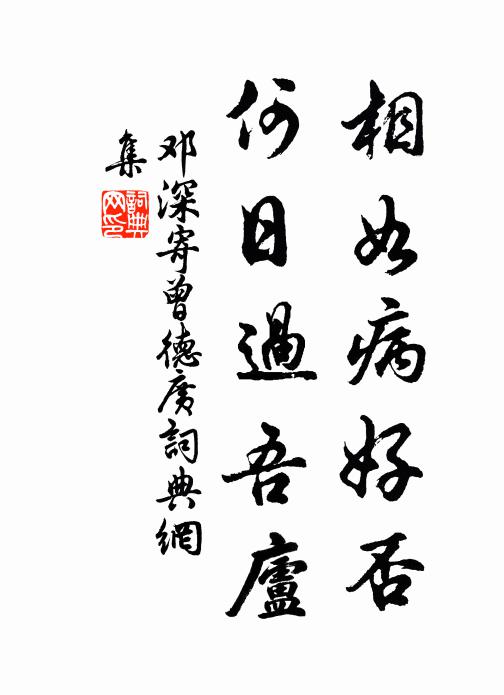 相如病好否
何日過吾廬
邓深寄曾德广詞典網
集
詞典網印